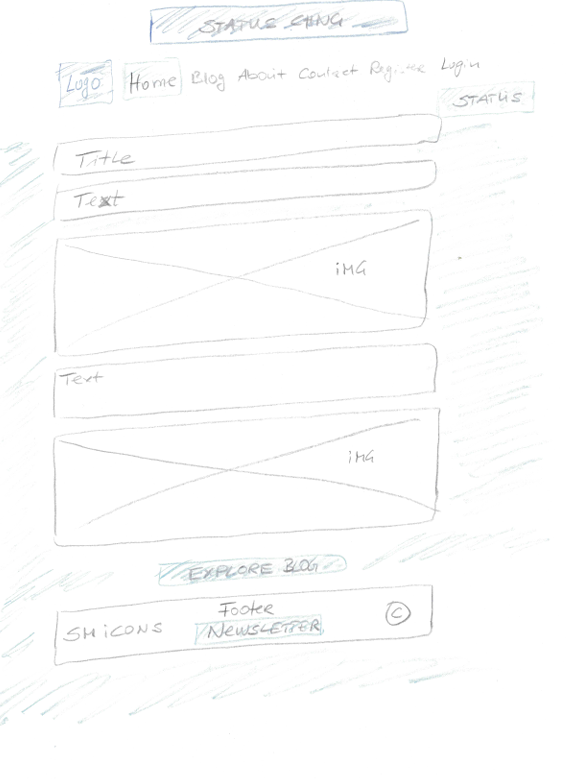 STATUS CHNG
Logo Home Blog About Contact Register Login
STATUS
Title
Text
iMG
Text
iMG
EXPLORE BLOG
Footer
SM iCONS NEWSLETTER ©